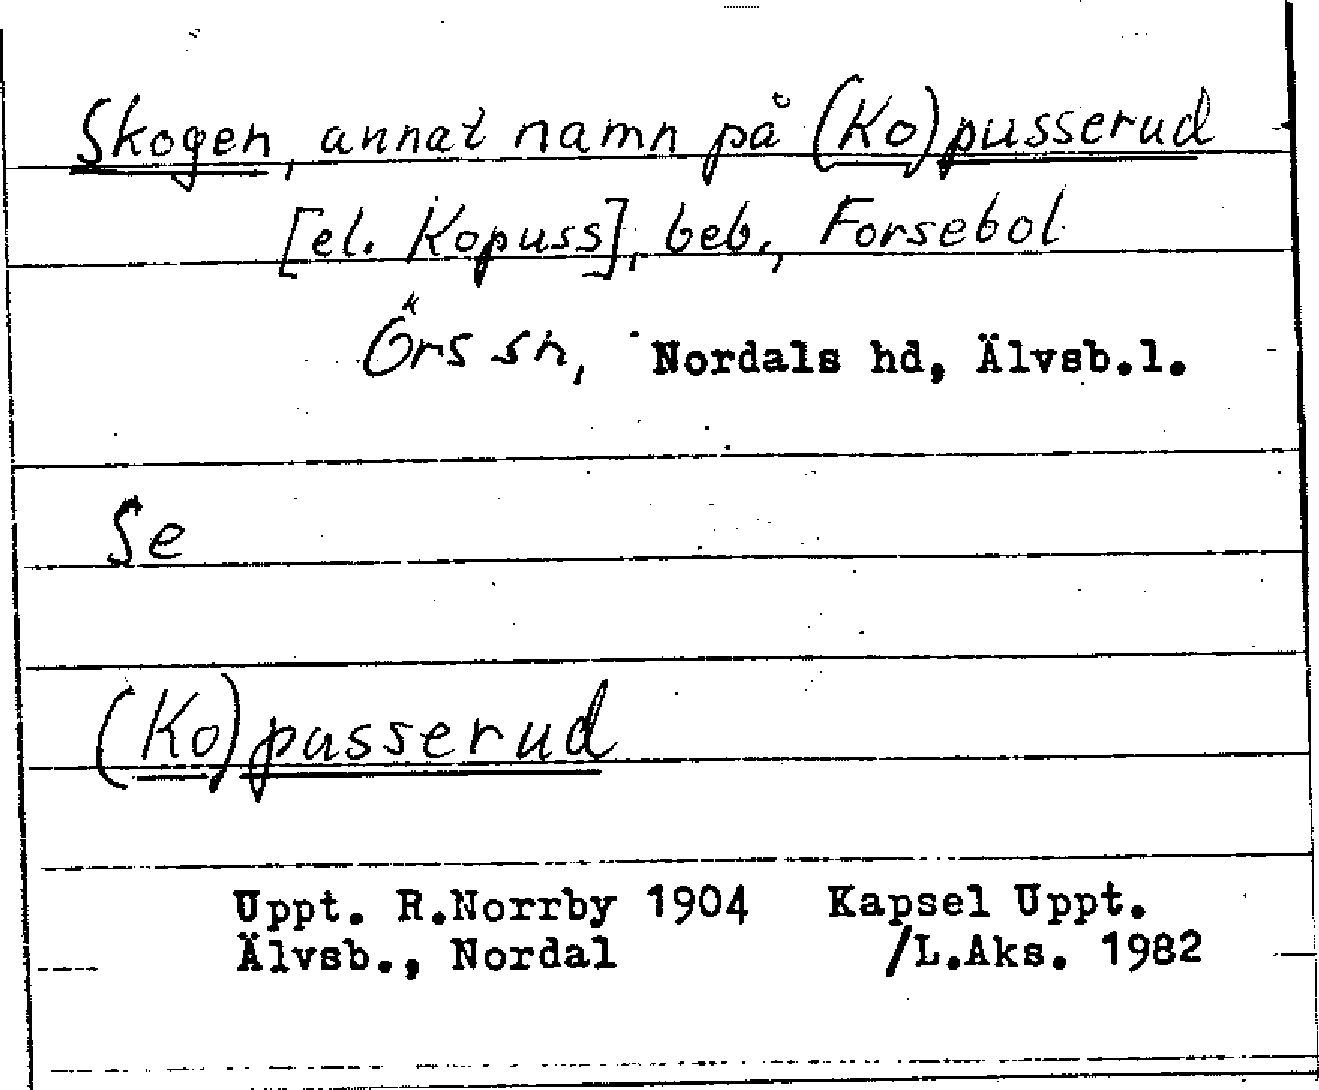 Skogen, annat namn på (Ko)pusserud
[el. Kopuss], beb., Forsebol
Örs sn, Nordals hd, Älvsb.l.
Se
(Ko)pusserud
Uppt. R.Norrby 1904 Kapsel Uppt.
Älvsb., Nordal /L.Aks. 1982